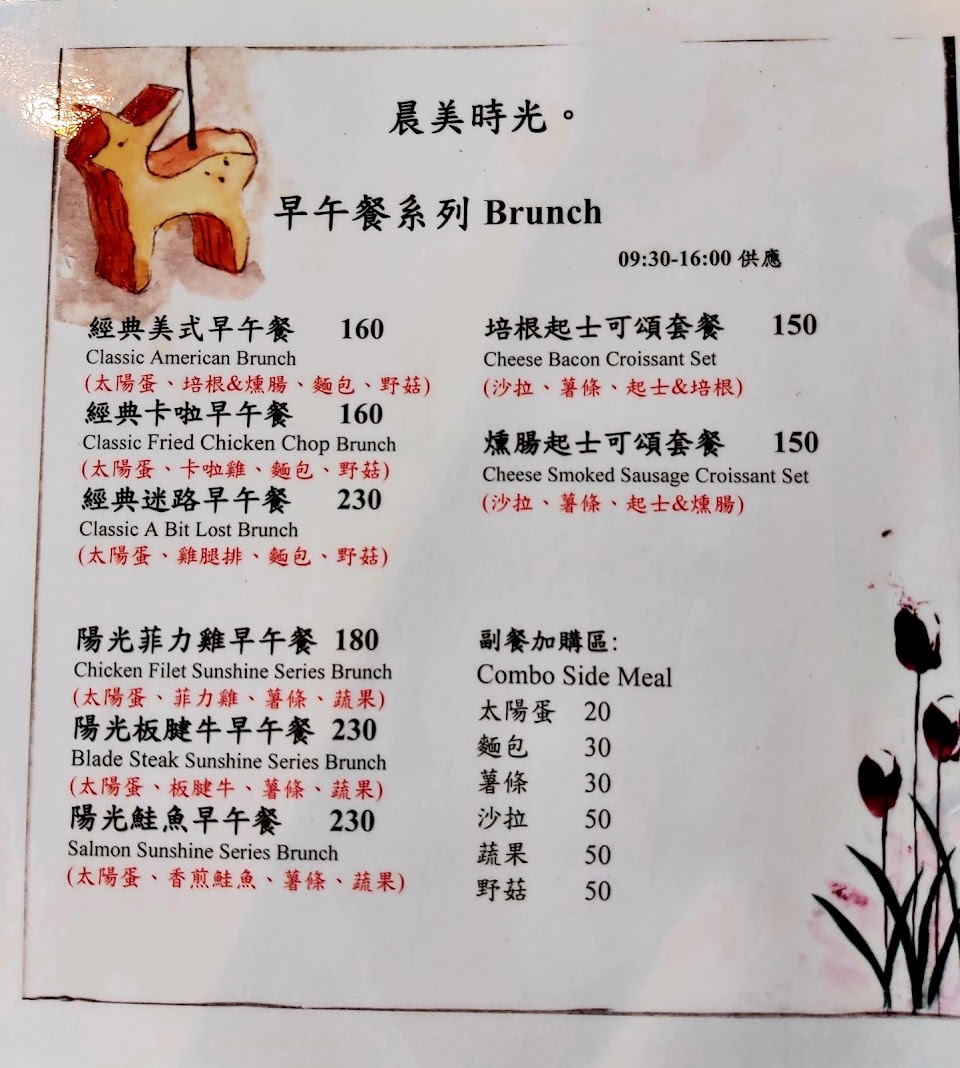 晨美時光。
早午餐系列 Brunch
09:30-16:00 供應
經典美式早午餐 160
Classic American Brunch
(太陽蛋、培根&燻腸、麵包、野菇)
經典卡啦早午餐 160
Classic Fried Chicken Chop Brunch
(太陽蛋、卡啦雞、麵包、野菇)
經典迷路早午餐 230
Classic A Bit Lost Brunch
(太陽蛋、雞腿排、麵包、野菇)
陽光菲力雞早午餐 180
Chicken Filet Sunshine Series Brunch
(太陽蛋、菲力雞、薯條、蔬果)
陽光板腱牛早午餐 230
Blade Steak Sunshine Series Brunch
(太陽蛋、板腱牛、薯條、蔬果)
陽光鮭魚早午餐 230
Salmon Sunshine Series Brunch
(太陽蛋、香煎鮭魚、薯條、蔬果)
培根起士可頌套餐 150
Cheese Bacon Croissant Set
(沙拉、薯條、起士&培根)
燻腸起士可頌套餐 150
Cheese Smoked Sausage Croissant Set
(沙拉、薯條、起士&燻腸)
副餐加購區:
Combo Side Meal
太陽蛋 20
麵包 30
薯條 30
沙拉 50
蔬果 50
野菇 50